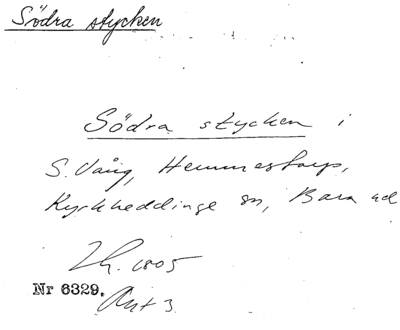 Södra stycken
Södra stycken i
S. Vång, Hemmestorps,
Kyrkheddinge sn, Bara hd
1805
Nr 6329.
Akt 3